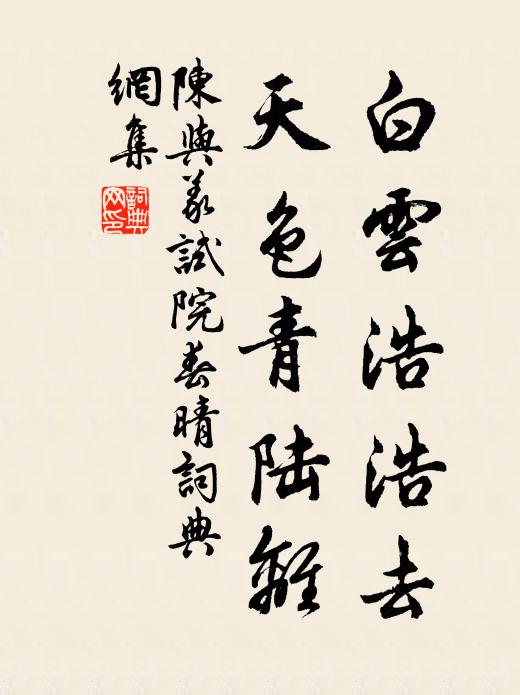 白雲浩浩去
天色青陆離
陳與义試院春晴詞典
網集
詞典網印